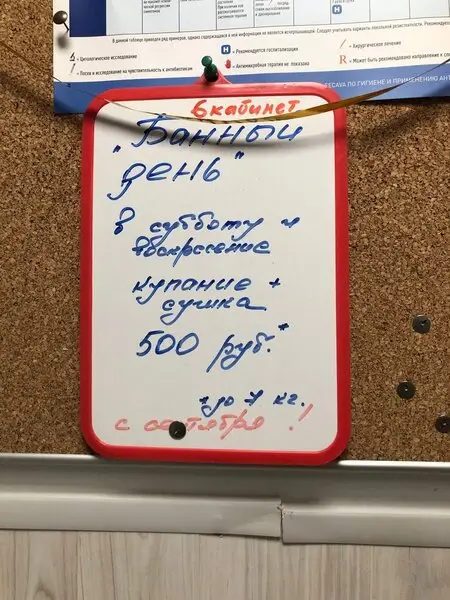 В данной таблице приведен ряд примеров, однако содержащаяся в ней информация не является исчерпывающей. Следует учитывать варианты локальной резистентности.
Цитологическое исследование
Н
Рекомендуется госпитализация
Хирургическое лечение
Посев и исследование на чувствительность к антибиотикам
Антимикробная терапия не показана
R
Может быть рекомендовано направление к
FECAVA ПО ГИГИЕНЕ И ПРИМЕНЕНИЮ
6 кабинет
"Банный
день"
в субботу и
воскресение
купание +
сушка
500 руб.*
*до 7 кг.
с сентября !